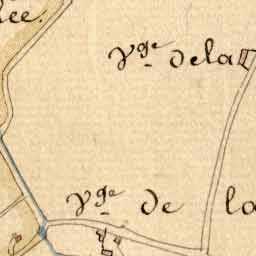 lee.
Vge dela
Vge de la